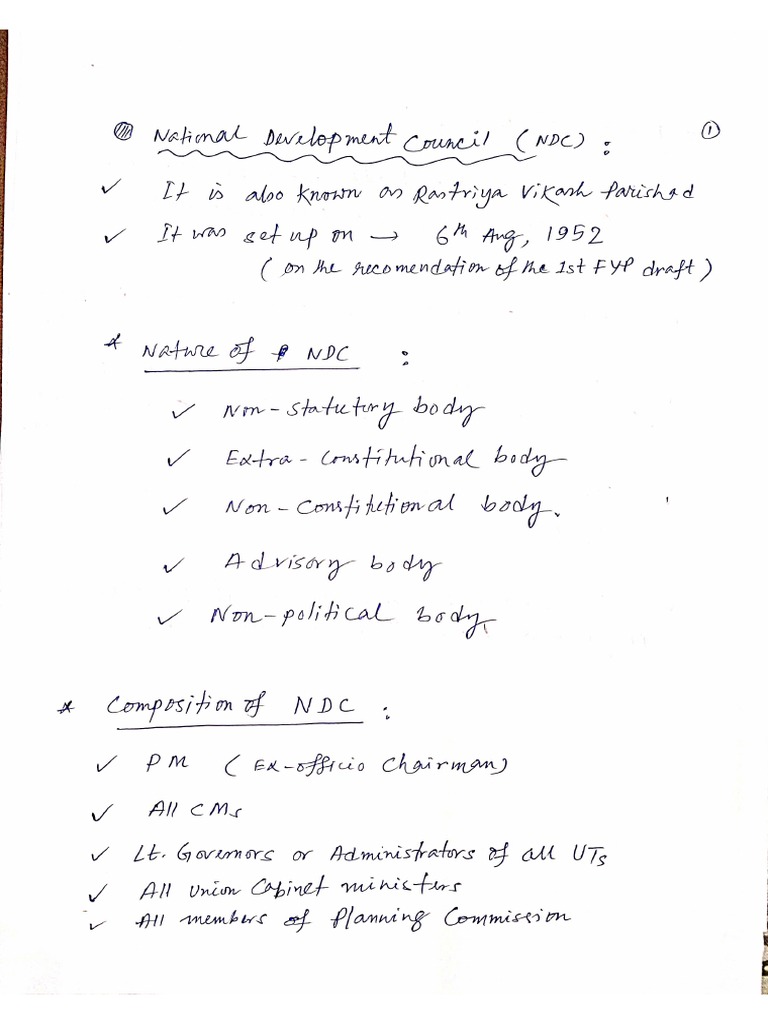 National Development Council (NDC) :
1
✓ It is also known as Rastriya Vikash Parishad
✓ It was set up on → 6th Aug, 1952
(on the recomendation of the 1st FYP draft)
* Nature of NDC :
✓ Non-statutory body
✓ Extra-Constitutional body
✓ Non-Constitutional body.
✓ Advisory body
✓ Non-political body.
* Composition of NDC :
✓ PM (Ex-officio Chairman)
✓ All CMs
✓ Lt. Governors or Administrators of all UTs
✓ All Union Cabinet ministers
✓ All members of Planning Commission